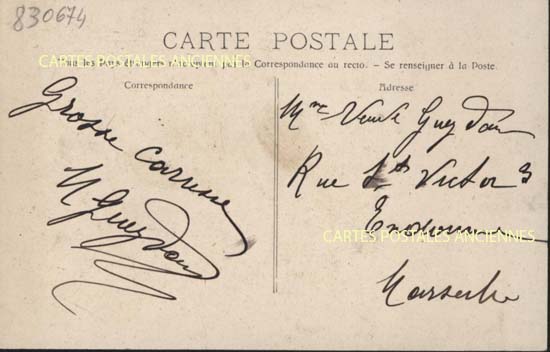 830674
CARTE POSTALE
CARTES POSTALES ANCIENNES
Tous les Pays étrangers n'acceptent pas la Correspondance au recto. - Se renseigner à la Poste.
Correspondance
Grosse caresse
Gueydan
Adresse
Mme Veuve Gueydan
Rue St Victor 3
CARTES POSTALES ANCIENNES
Marseille